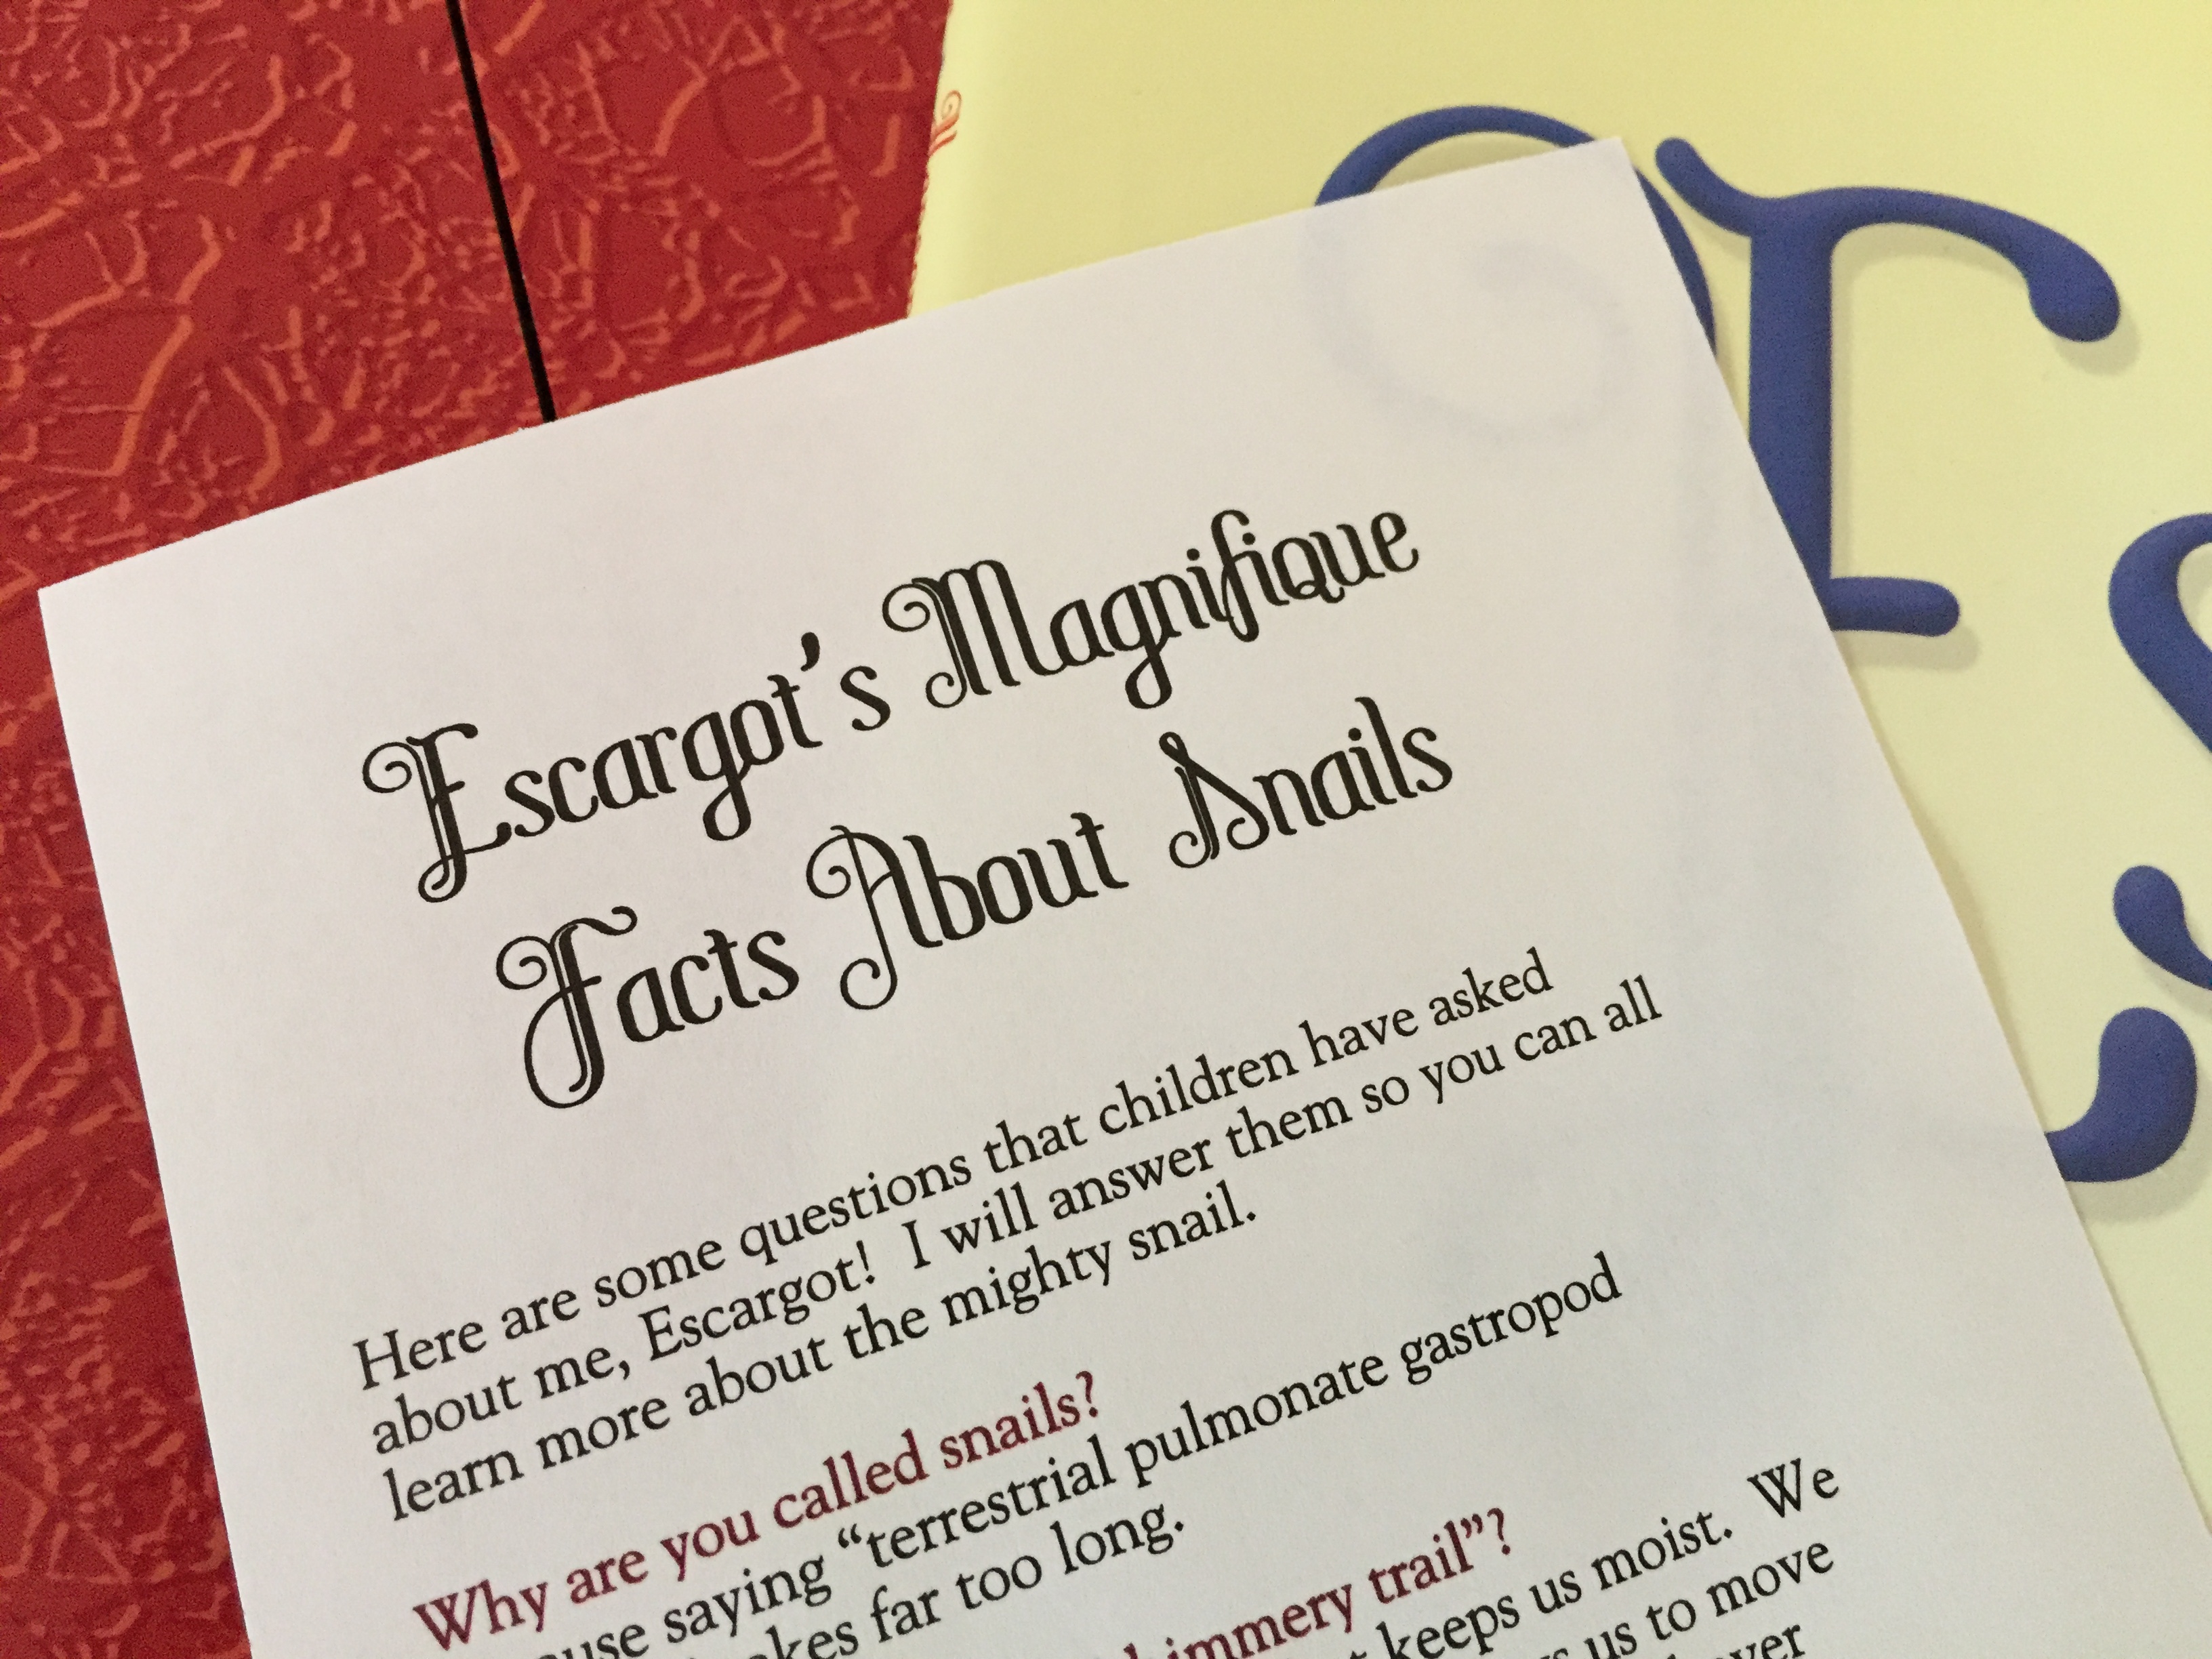 Escargot's Magnifique
Facts About Snails
Here are some questions that children have asked
about me, Escargot!  I will answer them so you can all
learn more about the mighty snail.
Why are you called snails?
saying “terrestrial pulmonate gastropod
far too long.
trail”?
keeps us moist.  We
us to move